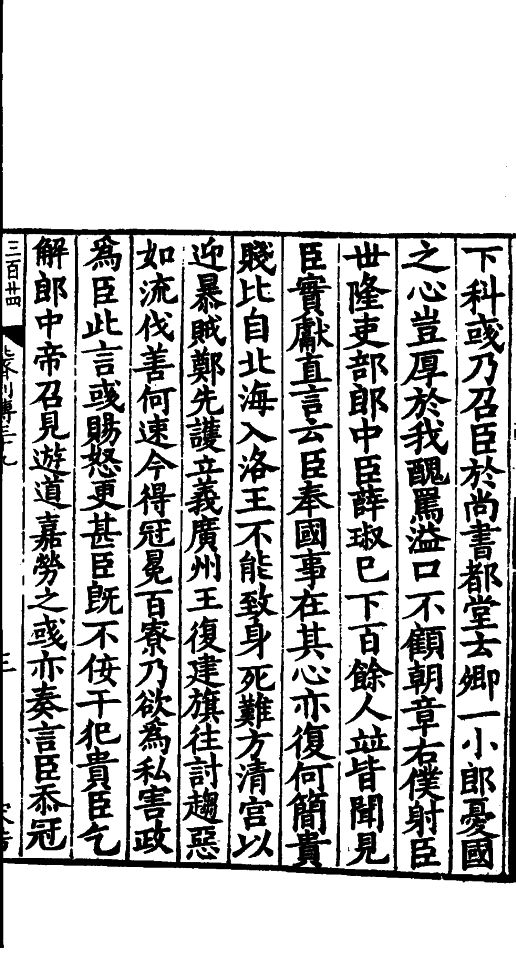 下科彧乃召臣於尚書都堂云卿一小郎憂國
之心豈厚於我醜罵溢口不顧朝章右僕射臣
世隆吏部郎中臣薛琡已下百餘人竝皆聞見
臣實獻直言云臣奉國事在其心亦復何簡貴
賤比自北海入洛王不能致身死難方清宮以
迎暴賊鄭先護立義廣州王復建旗往討趨惡
如流伐善何速今得冠冕百寮乃欲爲私害政
爲臣此言彧賜怒更甚臣旣不佞干犯貴臣乞
解郎中帝召見遊道嘉勞之彧亦奏言臣忝冠
三百廿四
北齊列傳三十九
三